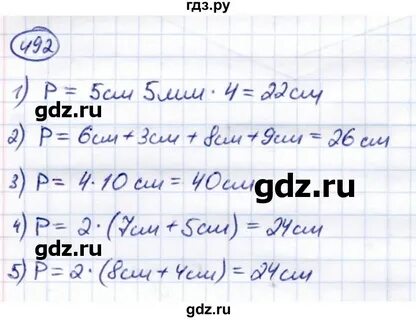 гдз.рф
492
1) P = 5см 5мм · 4 = 22см
gdz.ru
2) P = 6см + 3см + 8см + 9см = 26 см
gdz.ru
3) P = 4 · 10 см = 40см
gdz.ru
4) P = 2 · (7см + 5см) = 24см
gdz.ru
5) P = 2 · (8см + 4см) = 24см
gdz.ru